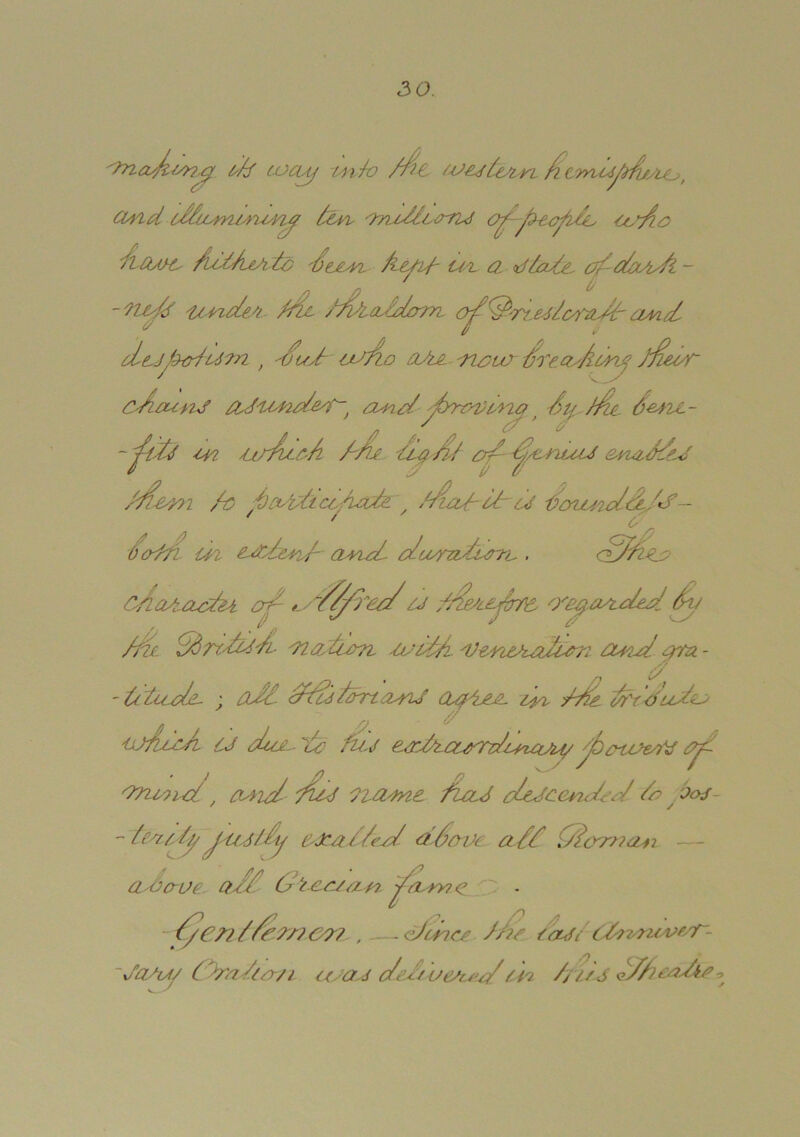 30.
making its way into the western hemisphere,
and illumining ten millions of people who
have hitherto been kept in a state of dark-
-ness under the thraldom of Priestcraft and
despotism, but who are now breaking their
chains asunder, and proving, by the bene-
-fits in which the light of Genius enables
them to participate, that it is boundless—
both in extent and duration. The
character of Alfred is therefore regarded by
the British nation with veneration and gra-
-titude; all Historians agree in the tribute
which is due to his extraordinary powers of
mind, and his name has descended to pos-
-terity justly exalted above all Roman —
above all Grecian fame.
Gentlemen, — Since the last Anniver-
-sary Oration was delivered in this Theatre,